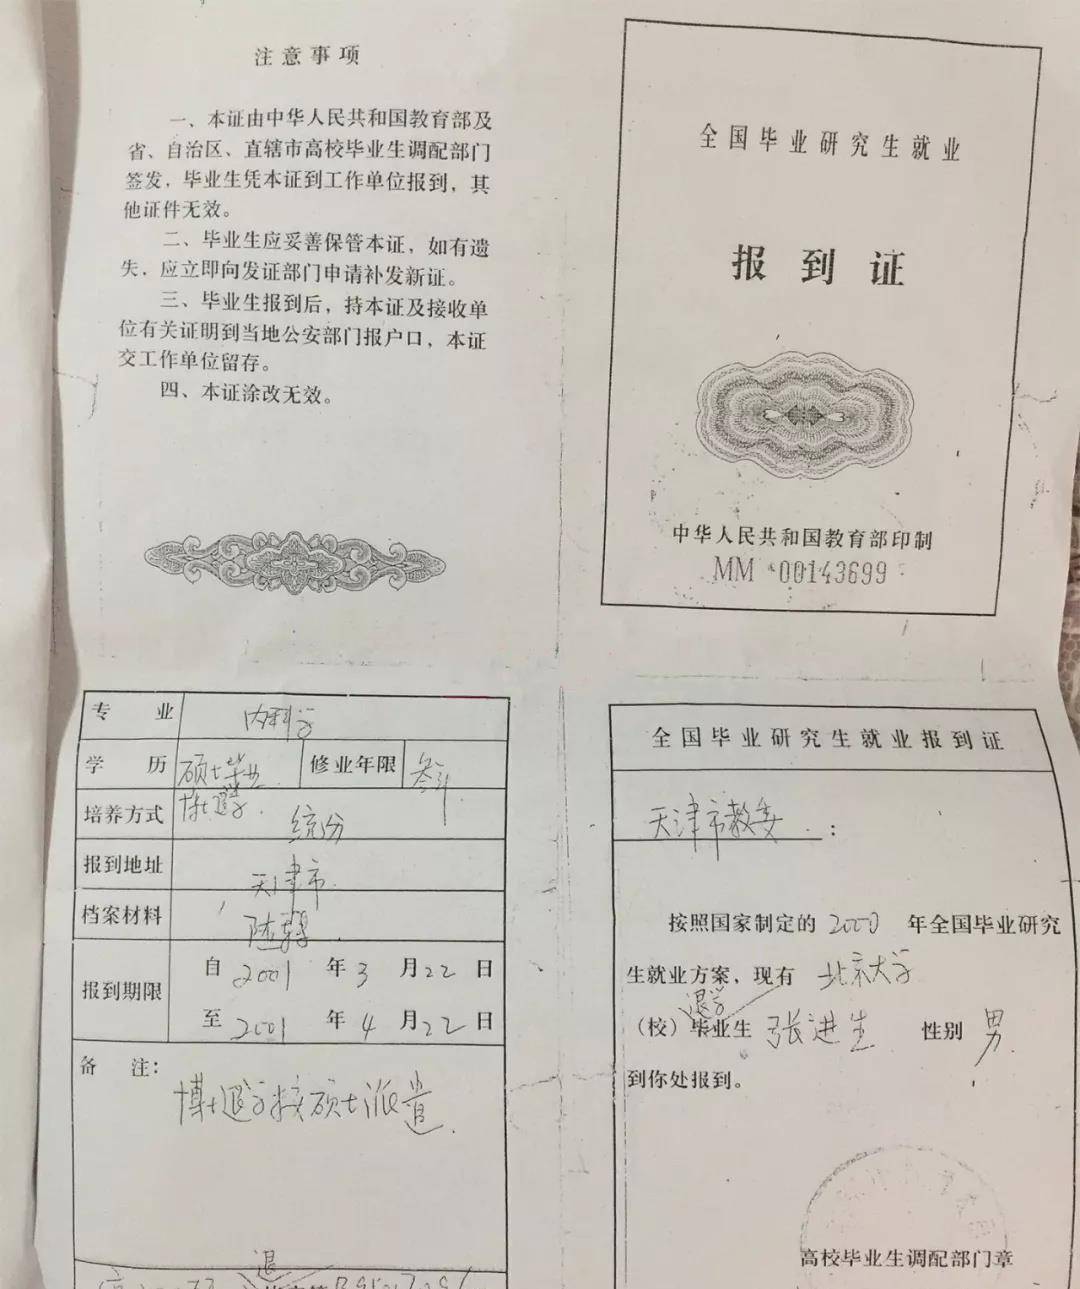 注意事项
一、本证由中华人民共和国教育部及
省、自治区、直辖市高校毕业生调配部门
签发，毕业生凭本证到工作单位报到，其
他证件无效。
二、毕业生应妥善保管本证，如有遗
失，应立即向发证部门申请补发新证。
三、毕业生报到后，持本证及接收单
位有关证明到当地公安部门报户口，本证
交工作单位留存。
四、本证涂改无效。
全国毕业研究生就业
报到证
中华人民共和国教育部印制
MM 00143699
专 业 内科学
学 历 硕士毕业 修业年限 叁年
博士退学
培养方式 统分
报到地址 天津市
档案材料 随寄
报到期限 自 2001 年 3 月 22 日
至 2001 年 4 月 22 日
备 注：
博士退学按硕士派遣
退
全国毕业研究生就业报到证
天津市教委：
按照国家制定的 2000 年全国毕业研究
生就业方案，现有 北京大学
退学
（校）毕业生 张进生 性别 男
到你处报到。
高校毕业生调配部门章